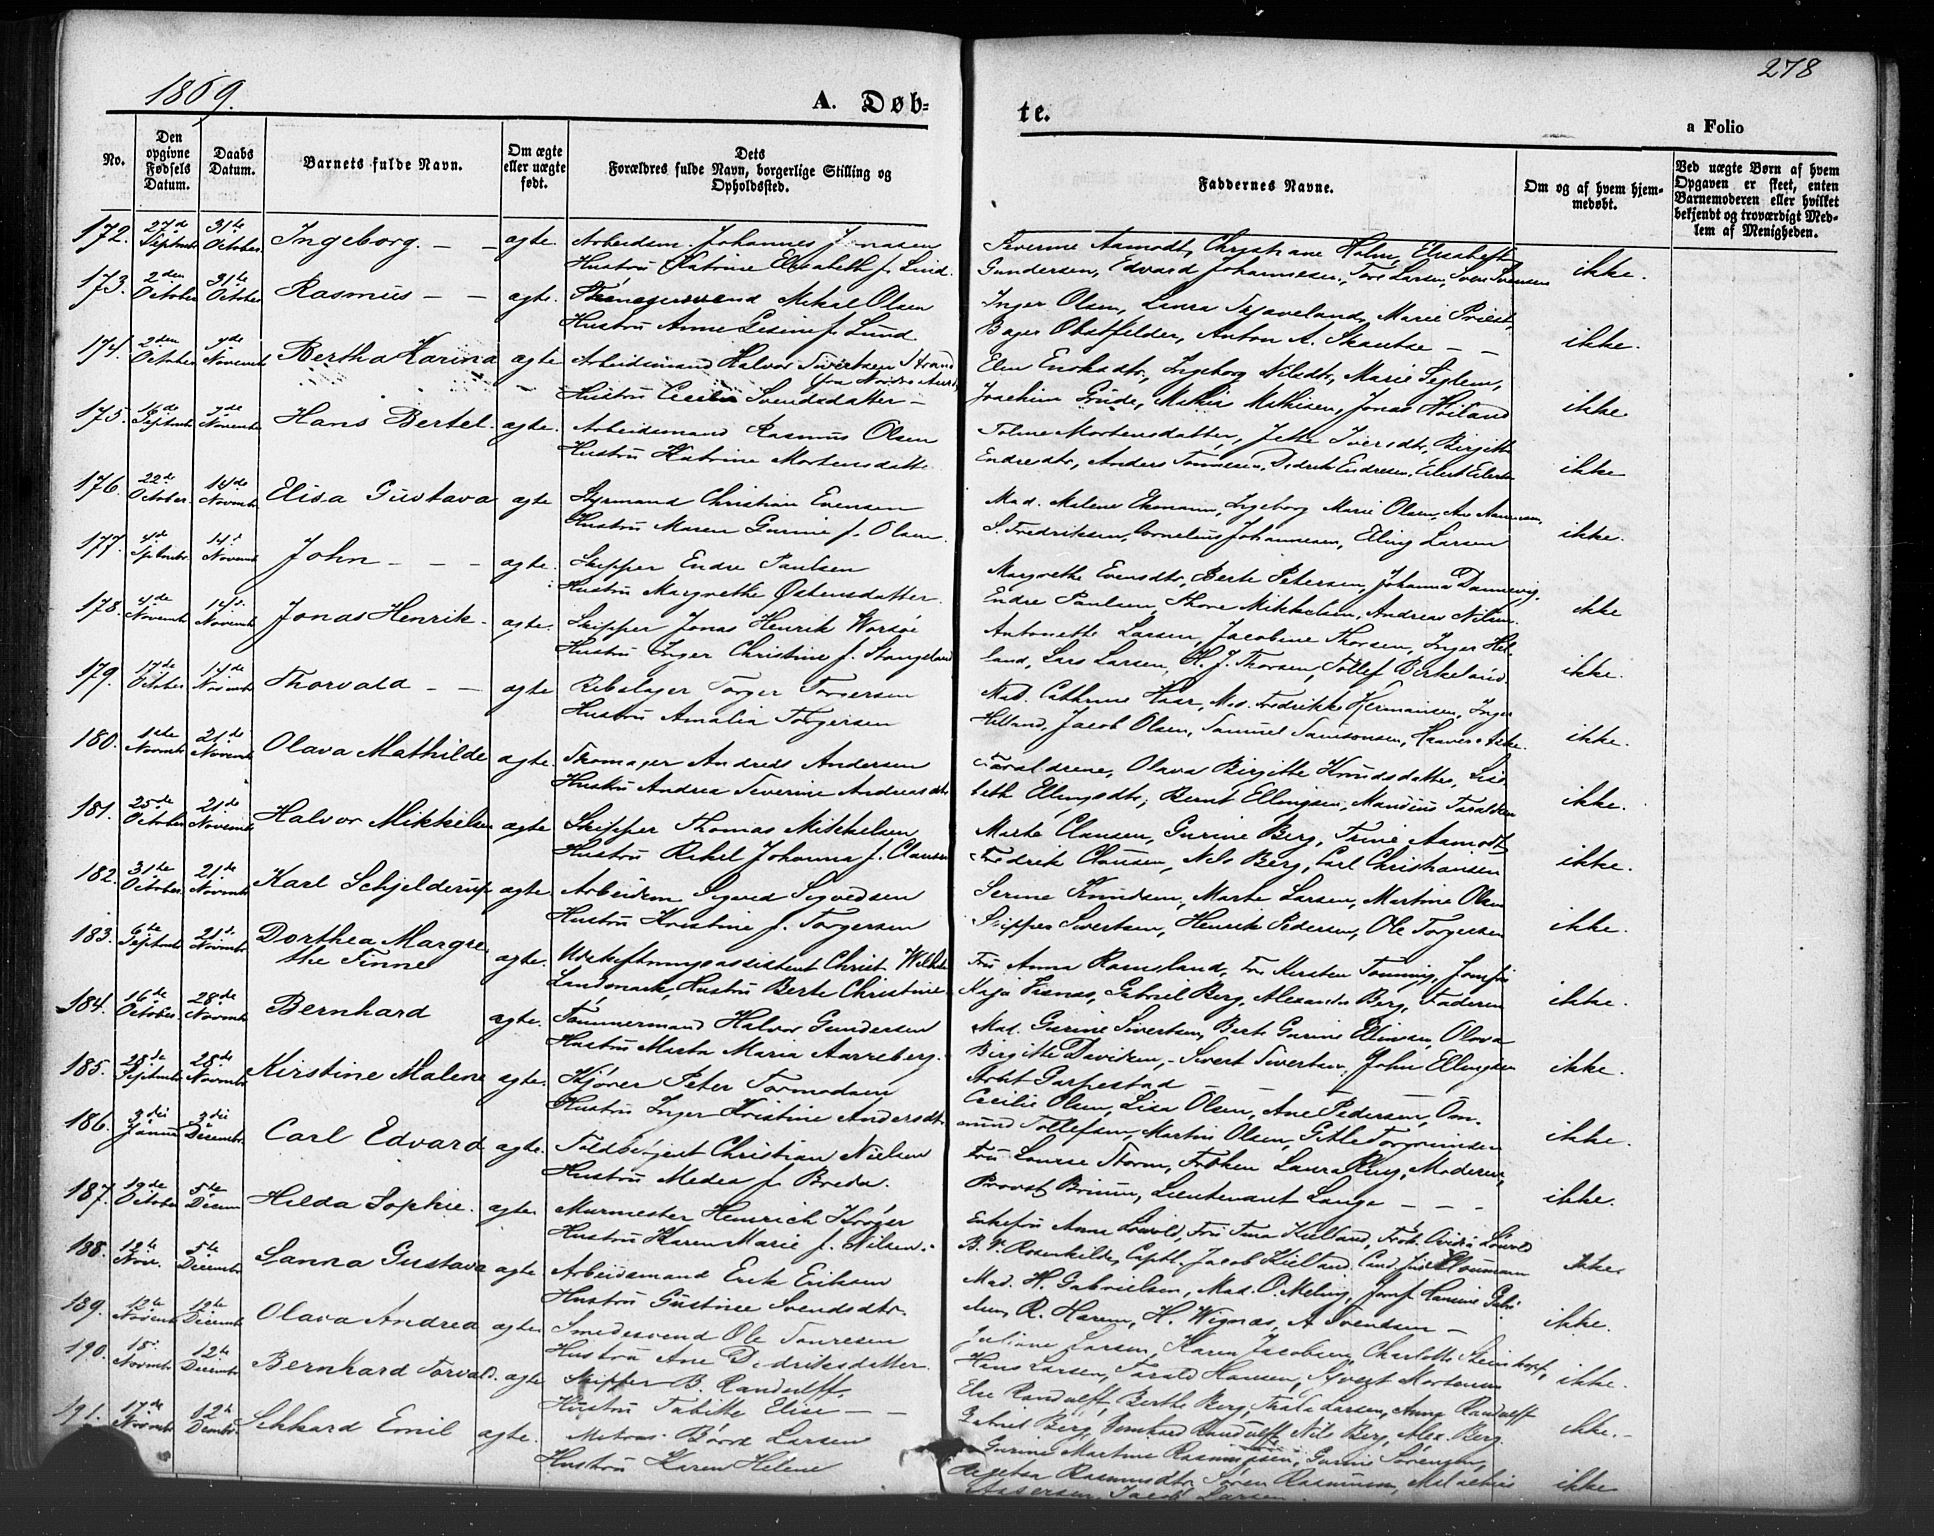 1869.
278
A. Døb-
te.
a Folio
No.
Den opgivne Fødsels Datum.
Daabs Datum.
Barnets fulde Navn.
Om ægte eller uægte født.
Dets Forældres fulde Navn, borgerlige Stilling og Opholdssted.
Faddernes Navne.
Om og af hvem hjemmedøbt.
Ved uægte Børn af hvem Opgaven er skeet, enten Barnemoderen eller hvilket bekjendt og troværdigt Medlem af Menigheden.
172. 27de Septmbr 31te October Ingeborg. - - ægte. Arbeidsm. Johannes Jonasen
Hustru Katrine Elisabeth f. Lund.
Severine Aamodt, Christiane Holm, Elisabeth
Gundersen, Edvard Johannesen, Tore Larsen, Sven Svensen
ikke.
173. 2den October 31te October Rasmus - - ægte. Mikal Olsen
Hustru Anne Gesine f. Lund
Inger Olsen, Laura Tjaveland, Marie Priest,
Bager Obstfelder, Anton A. Skantze - -
ikke.
174. 2den October 7de Novembr Bertha Karina ægte Arbeidsmand Halvor Sivertsen Strand
Hustru Cecilia Svendsdatter -
Elen Endresdtr, Ingeborg Nilsdtr, Marie Siglem,
Joachim Grude, Mathias Mathisen, Jonas Høiland
ikke
175. 16de Septmbr 7de Novembr Hans Bertel. ægte. Arbeidsmand Rasmus Olsen
Hustru Katrine Mortensdatter
Toline Mortensdatter, Jette Iversdtr, Birgitte
Endresdtr, Anders Tønnesen, Didrik Endresen, Eilert Eilertsen
ikke
176. 22de October 14de Novmbr Elisa Gustava ægte Styrmand Christian Evensen
Hustru Maren Gurine f. Olsen.
Mad. Malene Ekmann, Ingeborg Marie Olsen,
S. Fredriksen, Cornelius Johannesen, Elling Larsen
ikke.
177. 4de Septmbr 14d Novmb John - - - ægte. Skipper Endre Paulsen
Hustru Margrethe Østensdatter.
Margrethe Evensdtr, Berte Petersen, Johanna Dannevig,
Endre Paulsen, Thore Mikkelsen, Andreas Nilsen.
ikke
178. 4de Novemb 14d. Novemb Jonas Henrik - ægte. Skipper Jonas Henrik Worsøe
Hustru Inger Christine f. Stangeland
Antonette Larsen, Jacobine Thorsen, Inger Hel-
land, Lars Larsen, H. J. Thorsen, Tollef Birkeland.
ikke.
179. 17de October 14de Novemb Thorvald - - ægte Rebslager Torger Torgersen
Hustru Amalia Torgersen
Mad. Cathrine Haar, Mad. Fredrikke Hermansen, Inger
Helland, Jacob Olsen, Samuel Samsonsen, Haaver Aske.
ikke.
180. 1ste Novmb 21de Novemb Olava Mathilde ægte. Andreas Andersen
Hustru Andrea Severine Andreasdtr
Olava Birgitte Knudsdatter, Lis-
beth Ellingsdtr, Bernt Ellingsen, Mandius Taraldsen
ikke.
181. 25de October 21de Novembr Halvor Mikkelsen ægte Skipper Thomas Mikkelsen
Hustru Rakel Johanna f. Clausen
Marte Clausen, Gurine Berg, Trine Aamodt
Fredrik Clausen, Nils Berg, Carl Christiansen
ikke.
182. 31te October 21de Novmb Karl Schjelderup ægte Arbeidsm Sigved Sigvedsen
Hustru Kristine f. Torgersen
Serine Knudsen, Marte Larsen, Martine Olsen
Skipper Sivertsen, Henrik Pedersen, Ole Torgersen
ikke.
183. 6te Septmb 21d. Novmb Dorthea Margre-
the Finne ægte. Udskiftningsassistent Christ. Wilhelm
Landmark, Hustru Berte Christine
Fru Anna Ramsland, Fru Kirsten Tonning, Jomfru
Kaja Visnæs, Gabriel Berg, Alexander Berg, Faderen
ikke.
184. 16de October 28de Novmb Bernhard ægte. Tømmermand Halvor Gundersen
Hustru Marta Maria Aarreberg.
Mad. Gurine Sivertsen, Berte Gurine Ellingsen, Olava
Birgitte Davidsen, Sivert Sivertsen, John Ellingsen
ikke.
185. 28de Septmb 28de Novmb Kirstine Malene ægte. Kjører Peter Tormodsen
Hustru Inger Kristine Andersdtr
Garpestad -
Cecilie Olsen, Lisa Olsen, Ane Pedersen, Om-
mund Tollefsen, Martin Olsen, Gitle Torgrimsen
ikke.
186. 3die Januar 3die Decembr Carl Edvard ægte. Toldbetjent Christian Nielsen
Hustru Medea f. Breda.
Fru Louise Storm, Frøken Laura Ruy, Moderen,
Provst Bruun, Lieutenant Lange - - -
ikke.
187. 19de October 5te Decem Hilda Sophie. ægte. Murmester Heinrich Krøger
Hustru Karen Marie f. Nilsen.
Enkefru Anna Løvold, Fru Tina Kielland, Frøk. Løvold
B. V. Rosenkilde, Captl. Jacob Kielland, Cand. jur.
ikke
188. 12te Nov. 5te Decemb Sanna Gustava ægte. Arbeidsmand Erik Eriksen
Hustru Gustine Svendsdtr.
Mad. H. Gabrielsen, Mad. O. Meling, Jomf. Hansine Gabri-
elsen, R. Harem, H. Wignæs, A Svendsen -
ikke.
189. 12te Novemb 12te Decemb Olava Andrea ægte. Smedesvend Ole Tauresen
Hustru Ane Didriksdatter
Juliane Larsen, Karen Jacobsen, Charlotte Steinkopf,
Hans Larsen, Tarald Hansen, Sivert Mortensen
ikke.
190. 15. Novmb 12te Decemb Bernhard Torvald. ægte Skipper B. Randulff.
Hustru Tabitte Elise - -
Else Randulff, Berthe Berg, Thala Larsen, Anna Randulff
Gabriel Berg, Bernhard Randulff, Nils Berg, Alex. Berg.
ikke.
191. 17de Novmb 12te Decmb Sekkard Emil ægte. Matros. Børre Larsen
Hustru Karen Helene
Gurine Martine Rasmussen, Gurine Sørensen,
Rasmusdtr, Søren Rasmussen, Malachias
Assersen, Jacob Larsen.
ikke